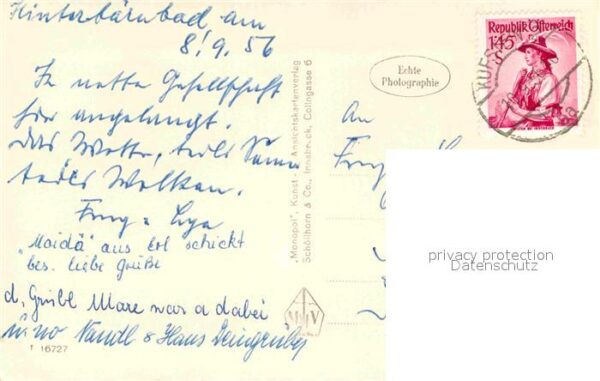 Hinterbärnbad am
8.9.56
In netter Gesellschaft
hier angelangt.
Das Wetter, teils Sonne
teils Wolken.
"Moidä" aus Erl schickt
bes. liebe Grüße
d. Grübl Mare was a dabei
Nandl & Hans
T 16727
"Monopol", Kunst- u. Ansichtskartenverlag
Schöllhorn & Co., Innsbruck, Collingasse 6
Echte
Photographie
Republik Österreich
1.45 S
KUFSTEIN
An
privacy protection
Datenschutz